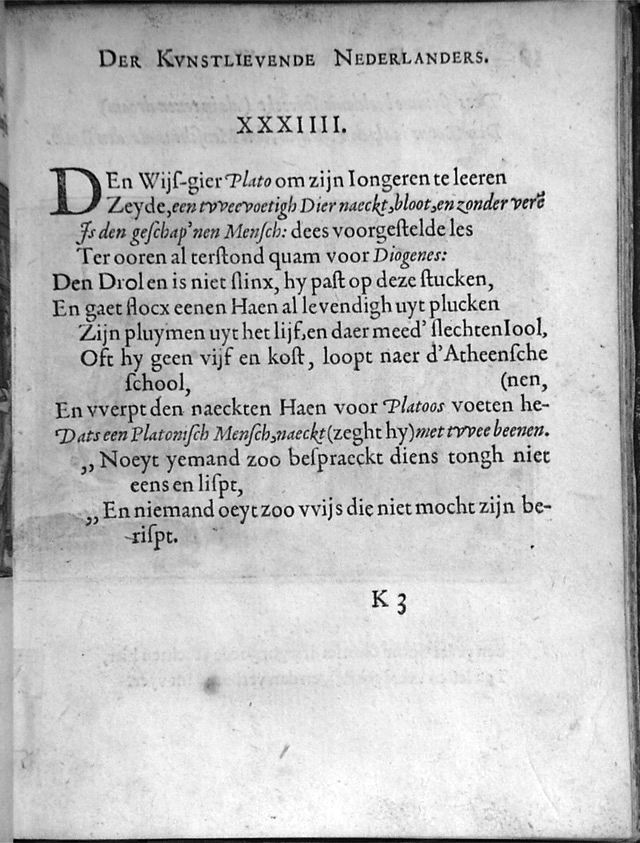 DER KVNSTLIEVENDE NEDERLANDERS.
XXXIIII.
DEn Wijſ-gier Plato om zijn Iongeren te leeren
Zeyde, een tvveevoetigh Dier naeckt, bloot, en zonder verē
Is den geſchap'nen Menſch: dees voorgeſtelde les
Ter ooren al terſtond quam voor Diogenes:
Den Drol en is niet ſlinx, hy paſt op deze ſtucken,
En gaet ſlocx eenen Haen al levendigh uyt plucken
Zijn pluymen uyt het lijf, en daer meed' ſlechten Iool,
Oft hy geen vijf en koſt, loopt naer d'Atheenſche
ſchool, (nen,
En vverpt den naeckten Haen voor Platoos voeten he-
Dats een Platoniſch Menſch, naeckt (zeght hy) met tvvee beenen.
,, Noeyt yemand zoo beſpraeckt diens tongh niet
eens en liſpt,
,, En niemand oeyt zoo vvijs die niet mocht zijn be-
riſpt.
K 3